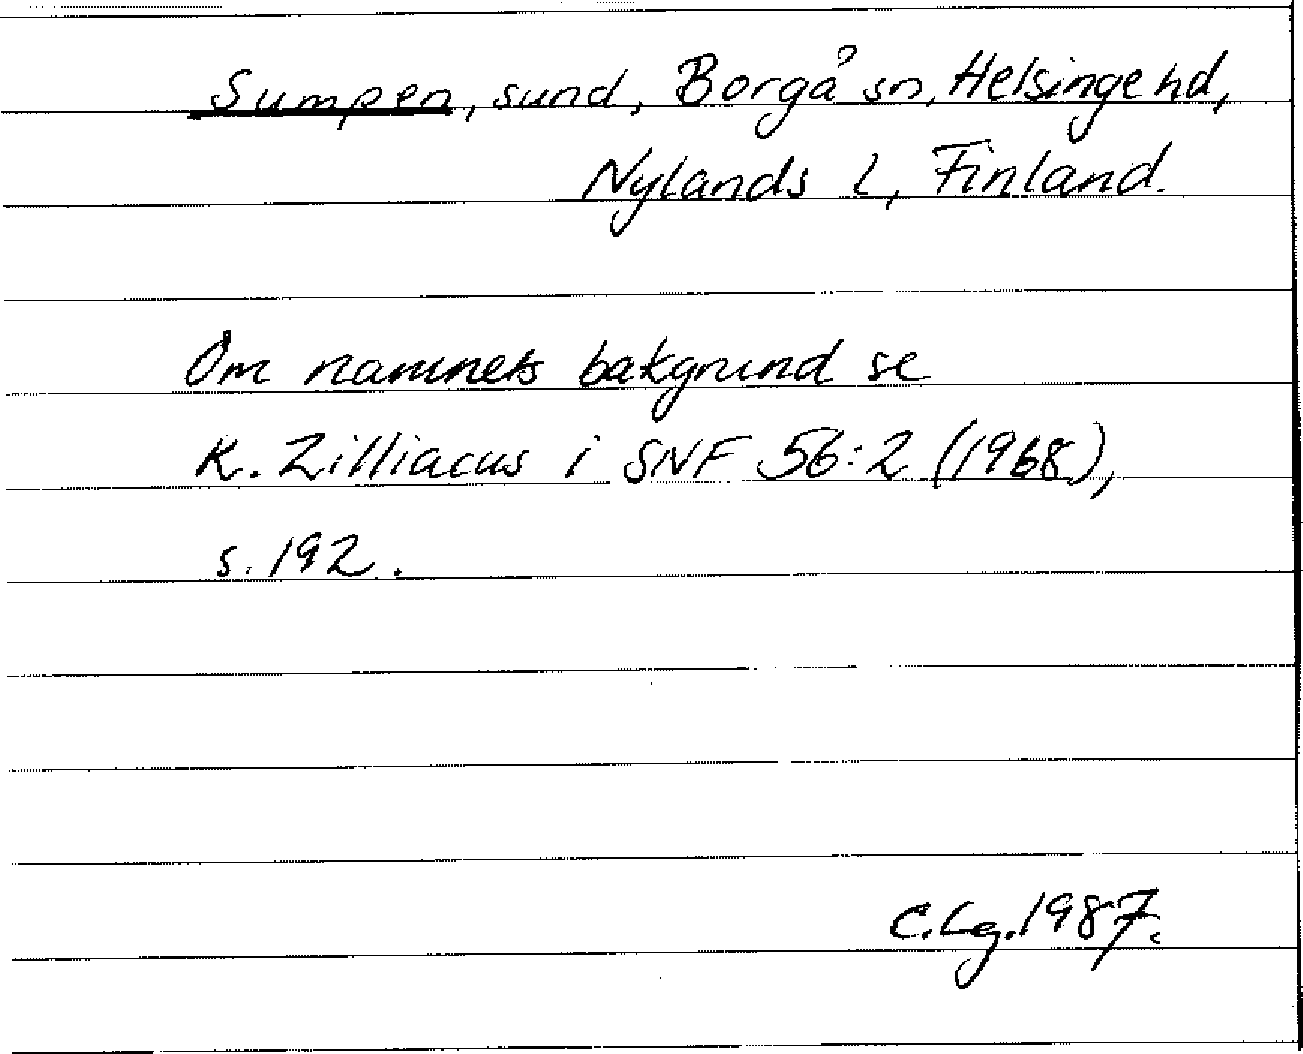 Sumpen, sund, Borgå sn, Helsinge hd,
Nylands l, Finland.
Om namnets bakgrund se
K. Zilliacus i SNF 56:2 (1968),
s. 192.
C. Lg. 1987.